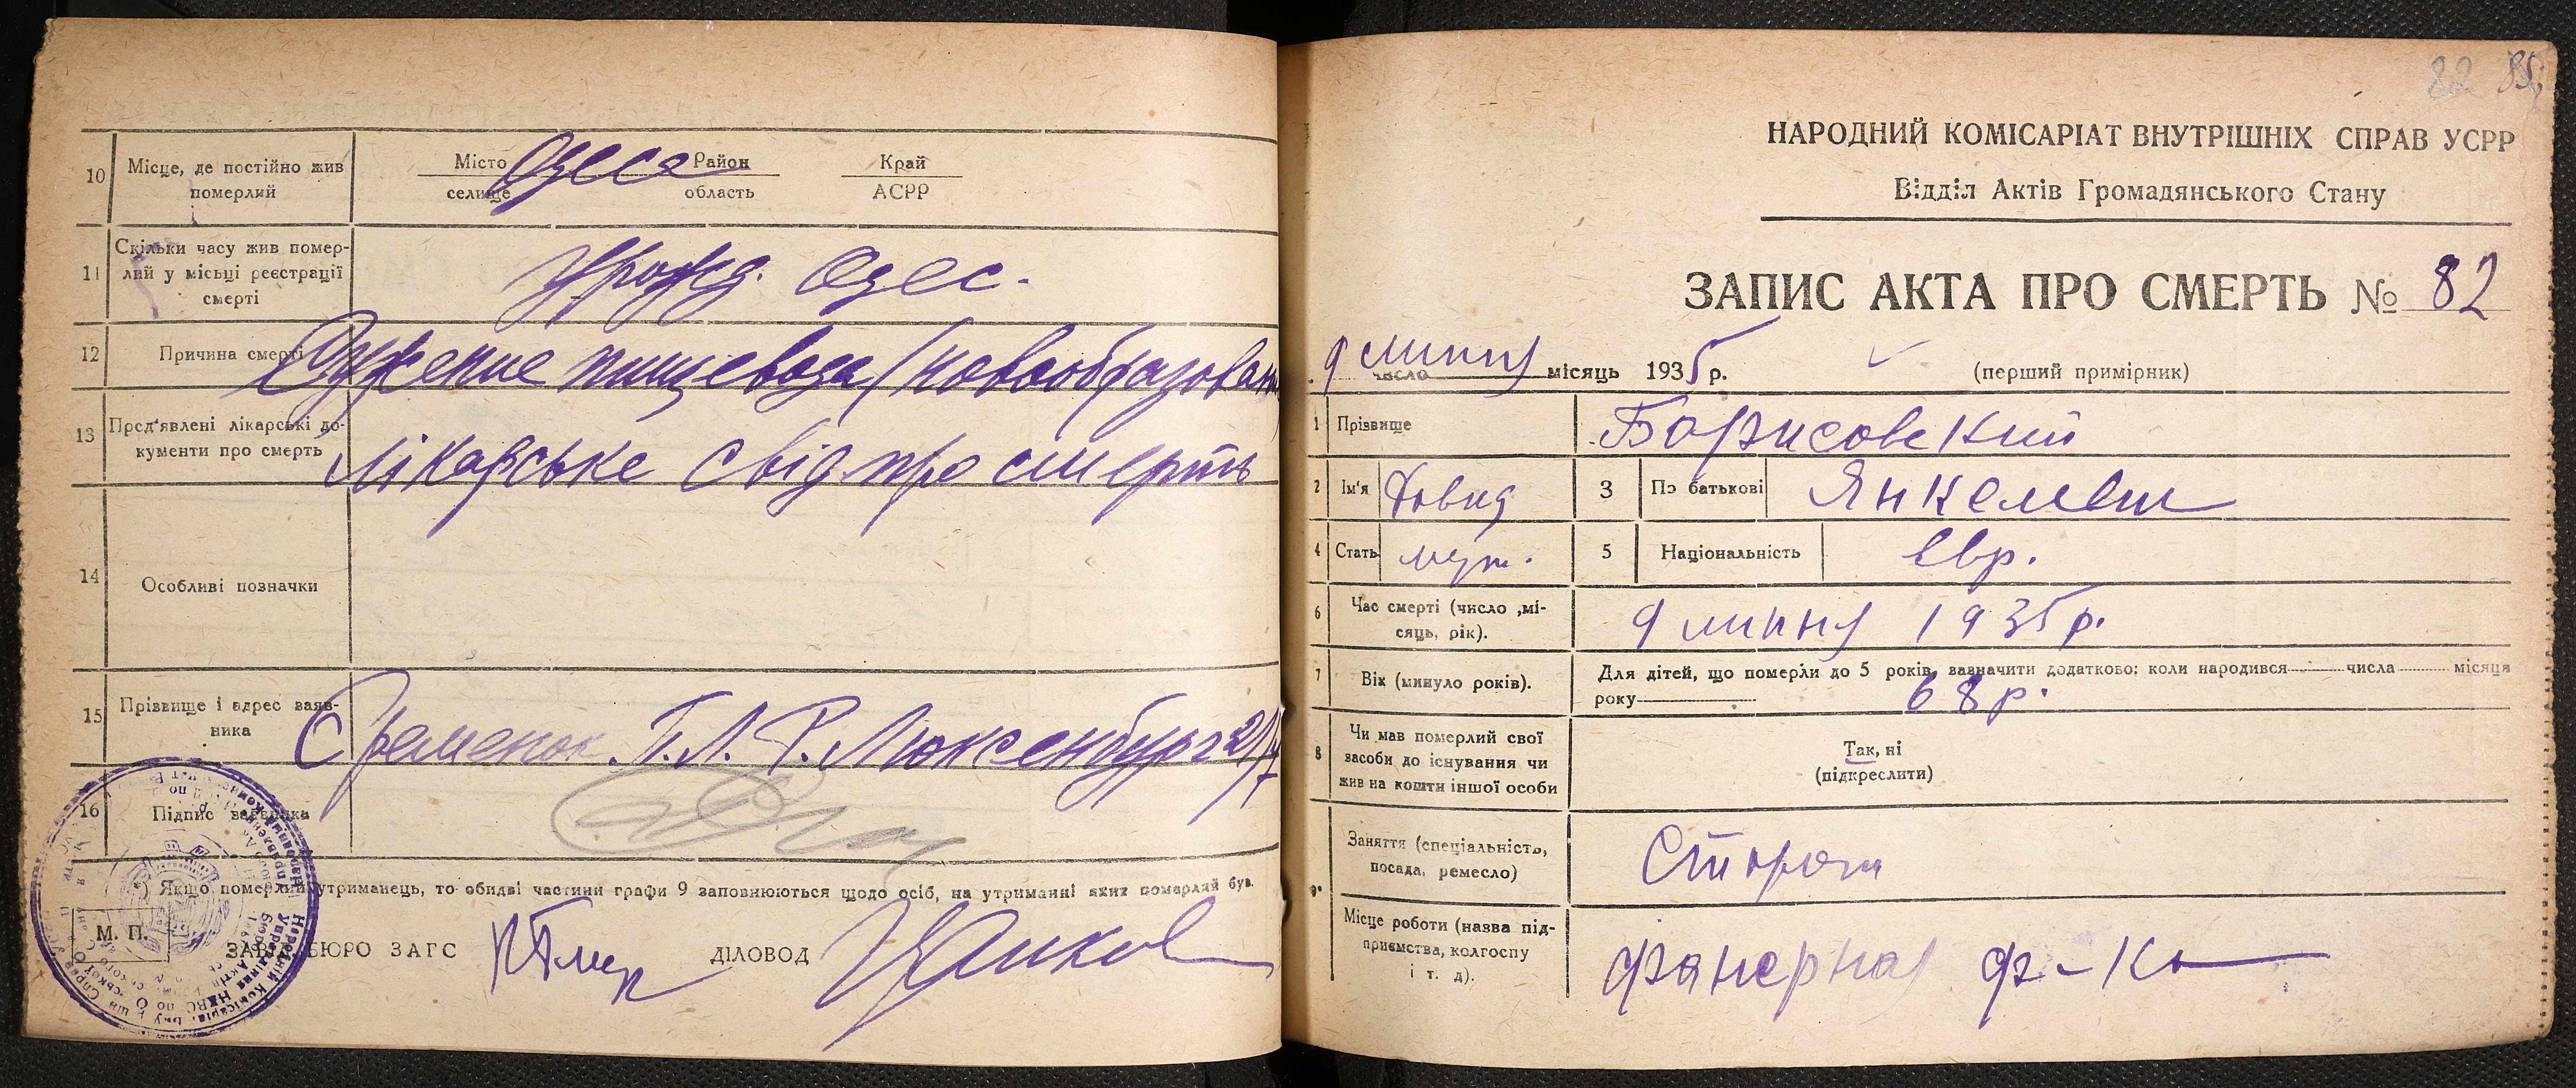 10 Місце, де постійно жив померлий
Місто селище Одеса Район область Край АСРР
11 Скільки часу жив помер-
лий у місьці реєстрації
смерті
Урожд. Одес.
12 Причина смерті Сужение пищевода (новообразован
13 Пред'явлені лікарські до-
кументи про смерть
Лікарське свід про смерть
14 Особливі позначки
15 Прізвище і адрес заяв-
ника
Р. Люксенбург
16 Підпис заявника
*) Якщо померлий утриманець, то обидві частини графи 9 заповнюються щодо осіб, на утриманні яких померлий був.
М. П.
ЗАВ. БЮРО ЗАГС ДІЛОВОД
82
НАРОДНИЙ КОМІСАРІАТ ВНУТРІШНІХ СПРАВ УСРР
Відділ Актів Громадянського Стану
ЗАПИС АКТА ПРО СМЕРТЬ № 82
9 липня число місяць 1935 р. (перший примірник)
1 Прізвище Борисовский
2 Ім'я Довид 3 По батькові Янкелев
4 Стать муж. 5 Національність евр.
6 Час смерті (число ,мі-
сяць, рік).
9 липня 1935 р.
7 Вік (минуло років).
Для дітей, що померли до 5 років, вазначити додатково: коли народився числа місяця
року 68 р.
8 Чи мав померлий свої
засоби до існування чи
жив на кошти іншої особи
Так, ні
(підкреслити)
9* Заняття (спеціальність,
посада, ремесло)
Сторож
Місце роботи (назва під-
приємства, колгоспу
і т. д).
фанерная ф-ка